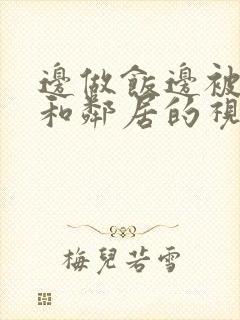 邊做飯邊被
和鄰居的視
梅兒若雪